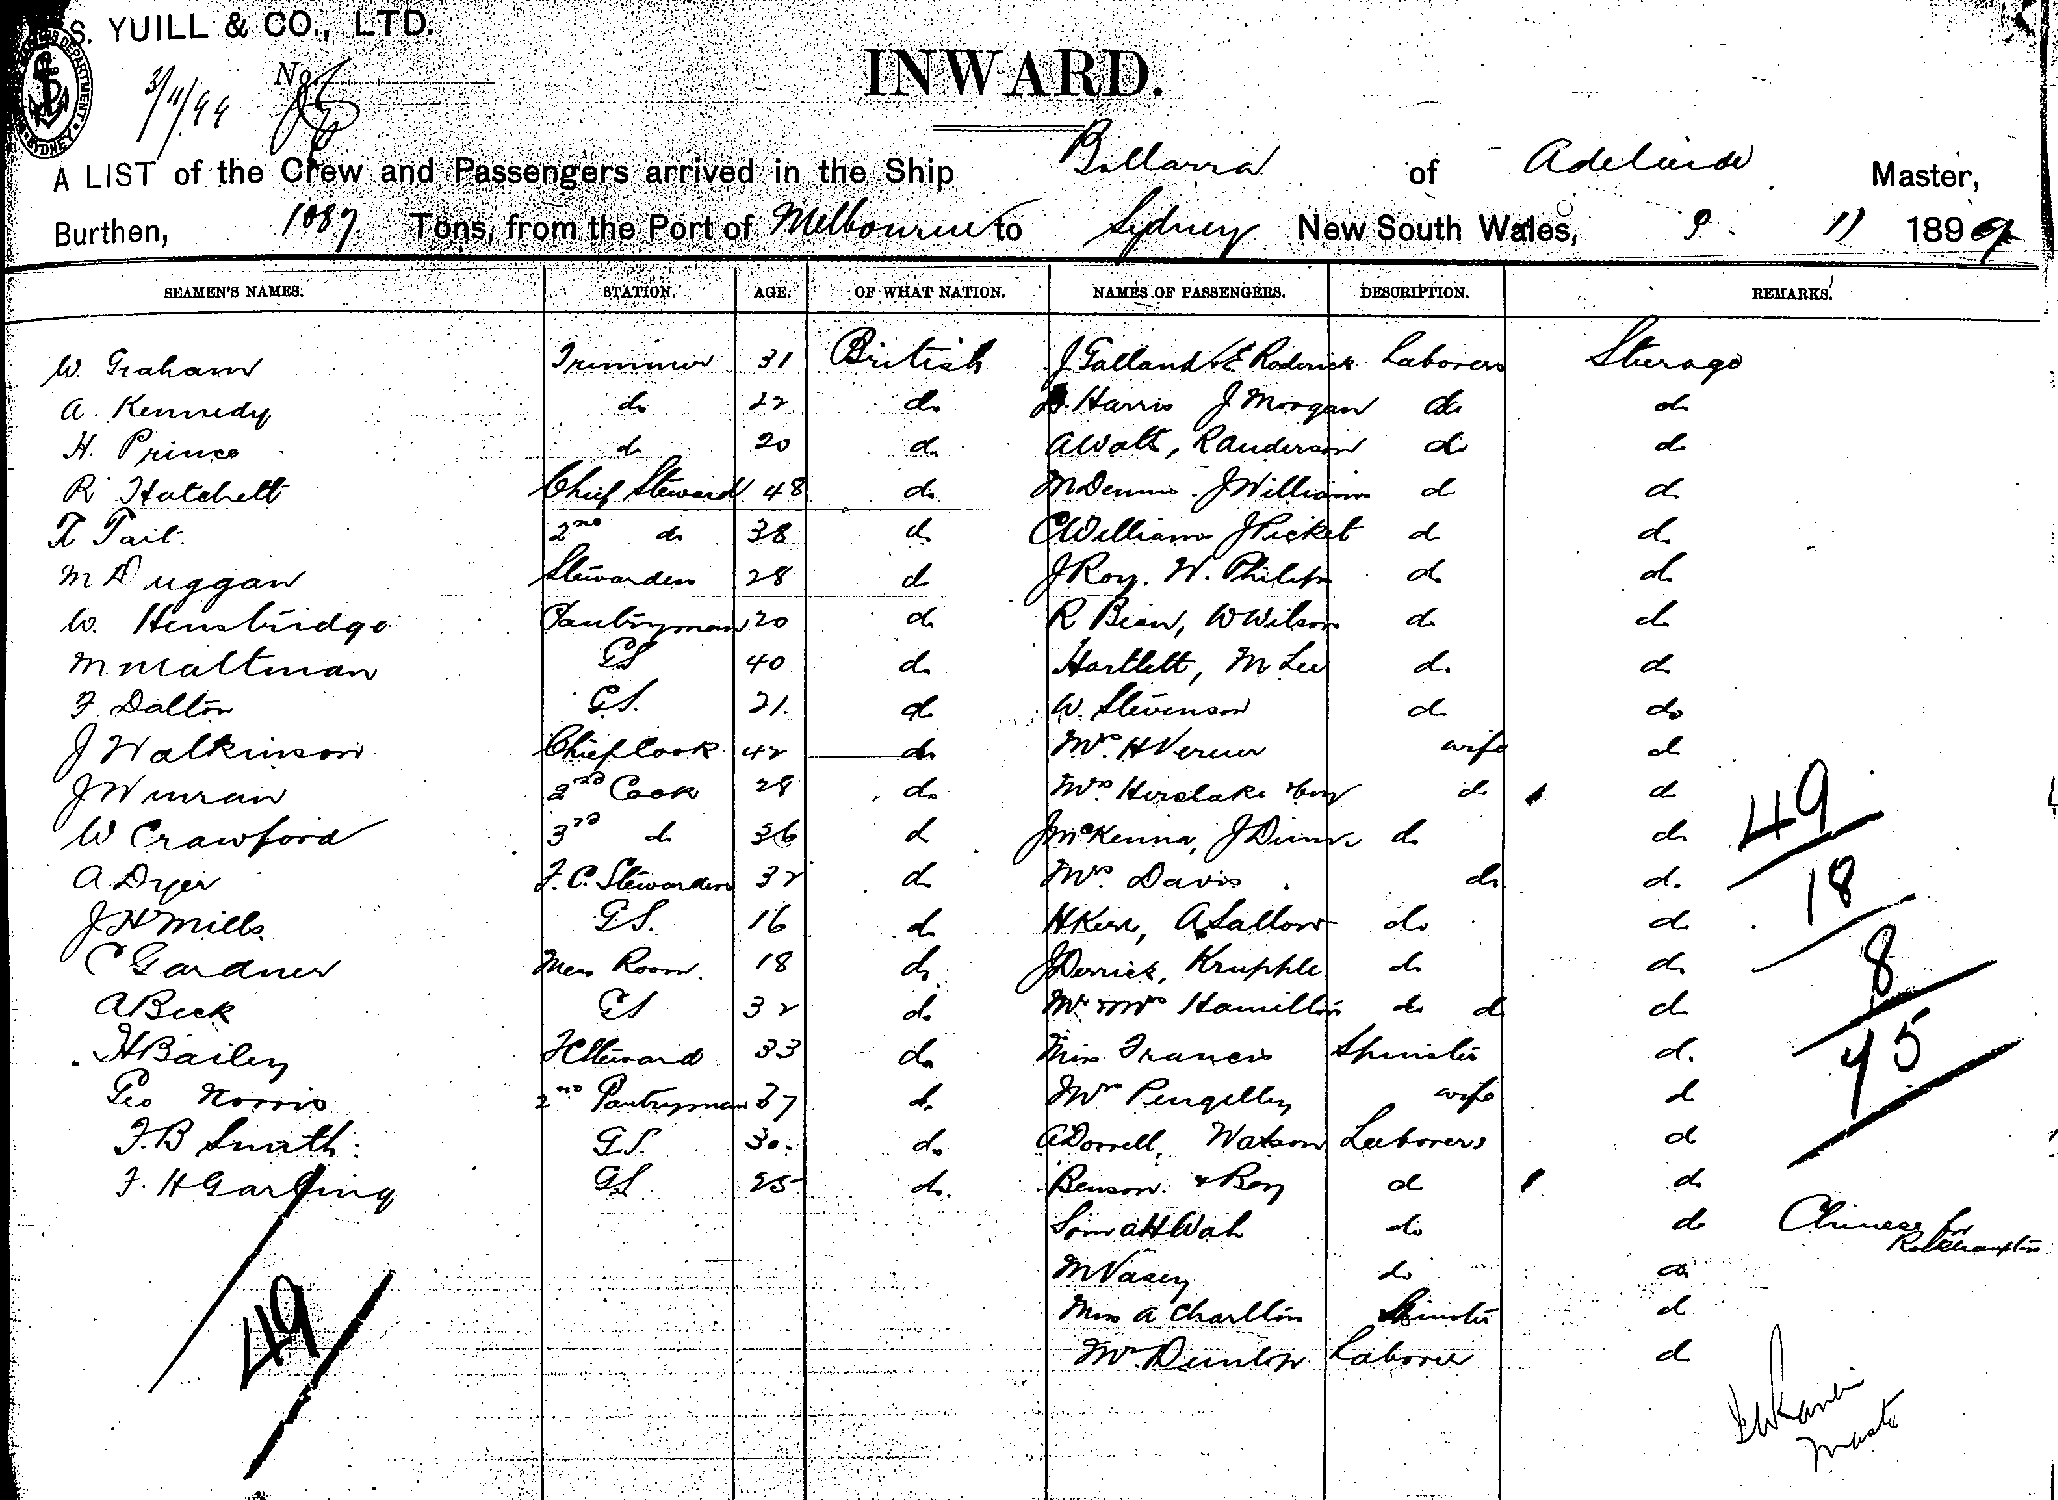 S. YUILL & CO., LTD.
No
3/11/99
INWARD.
A LIST of the Crew and Passengers arrived in the Ship Bullarra of Adelaide Master,
Burthen, 1087 Tons, from the Port of Melbourne to Sydney New South Wales, 9. 11 1899
SEAMEN'S NAMES. STATION. AGE. OF WHAT NATION. NAMES OF PASSENGERS. DESCRIPTION. REMARKS.
W. Graham Trimmer 31 British J Galland & E Roderick Laborers Steerage
A. Kennedy do 22 do Harris J Morgan do do
H. Prince do 20 do A Watt, R Anderson do do
R Hatchett Chief Steward 48 do M Dennis. J Williams do do
Tait. 2nd do 38 do C Williams J Picket do do
M Duggan Stewardess 28 do J Roy. W. Philips do do
W. Hensbridge Pantryman 20 do R Bien, W Wilson do do
M Maltman GS 40 do Hartlett, M Lee do do
F. Dalton G.S. 21. do W. Stevenson do do
J Walkinson Chief Cook 42 do Mrs. H Verner wife do
J W 2nd Cook 28 do Mrs. Herslake & boy do do
W Crawford 3rd do 36 do J McKenna, J do do
A Dyer F.C. Stewardess 32 do Mrs. Davis do do
J H Mills G.S. 16 do H Kerr, A Sallow do do
C Gardner Mess Room. 18 do J Derrick, Krupple do do
A Beck GS 32 do Mr & Mrs Hamilton do do do
H Bailey F C Steward 33 do Miss Francis Spinster do
Geo Norris 2nd Pantryman 37 do Mrs Pengelley wife do
F. B Smith. G.S. 30. do A Dorrell, Watson Laborers do
F. H Garling GS 25 do Benson. & Boy do do
Som Ah Wah do do Chinese for
Rockhampton
M Vasey do do
Miss A Charlton Spinster do
Mr Dunlop Laborer do
49
18
8
45
49
Master